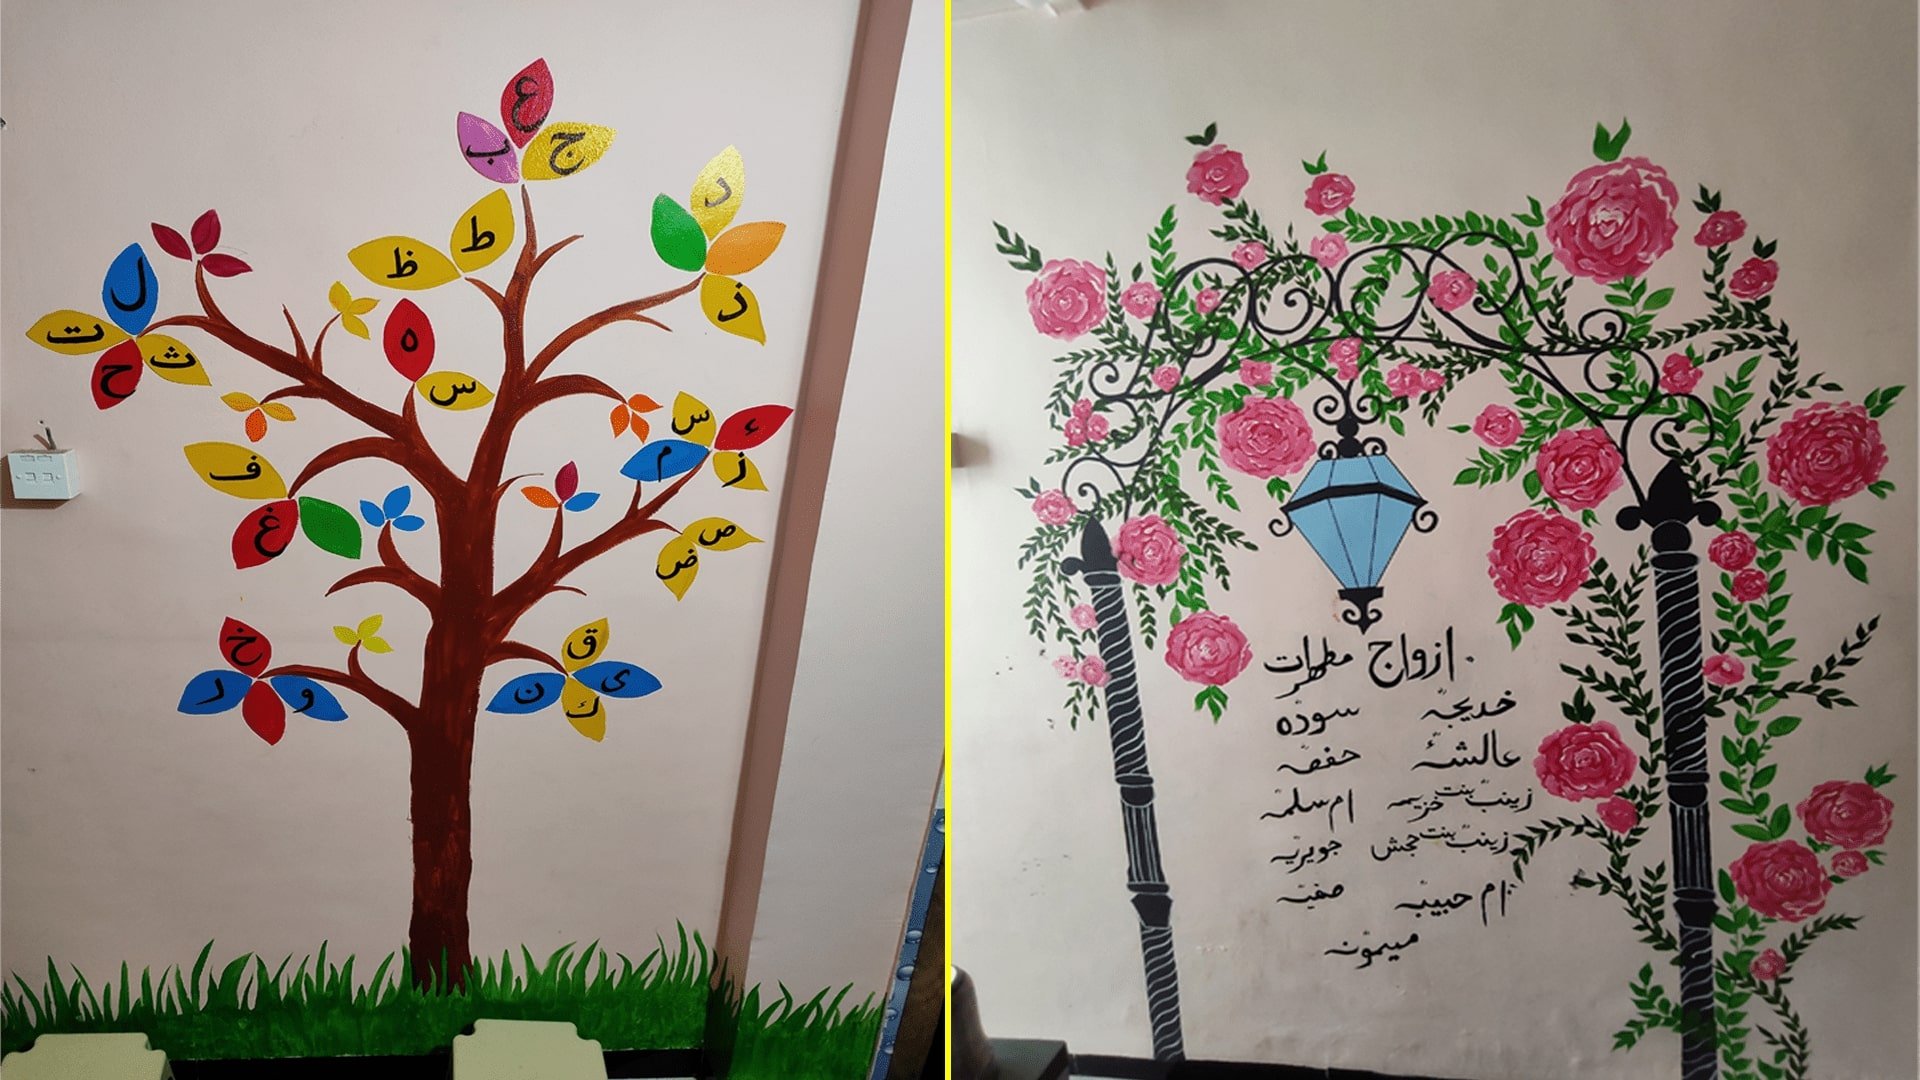 ع
ب ج
د
ط
ظ
ذ
ل
ت ث
ح
ه
س
س
ء
م ز
ف
غ
ص
ض
خ
ر و
ق
ن ی
ك
ازواج مطہرات
خدیجہؓ سودہؓ
عائشہؓ حفصہؓ
زینبؓ بنت خزیمہ ام سلمہؓ
زینبؓ بنت جحش جویریہؓ
ام حبیبہؓ صفیہؓ
میمونہؓ